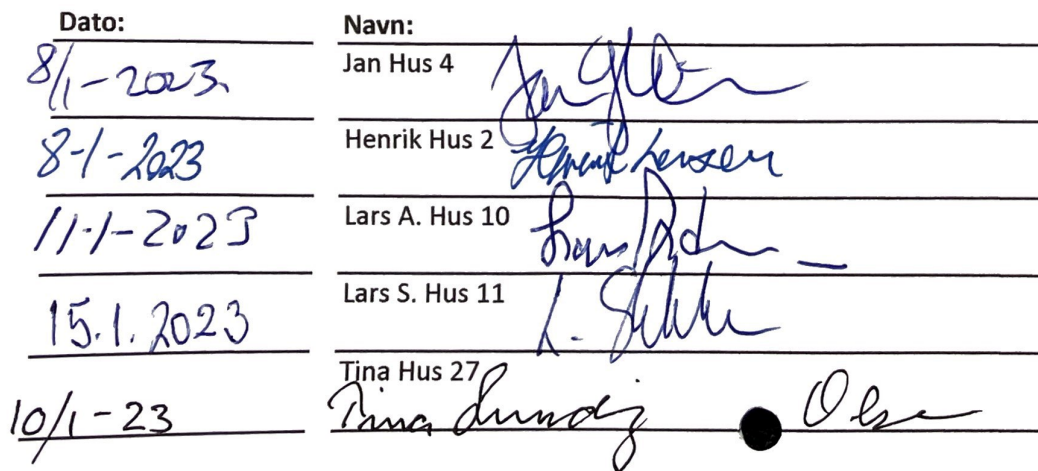 Dato: Navn:
8/1-2023. Jan Hus 4 Jan
8-1-2023 Henrik Hus 2 Henrik
11-1-2023 Lars A. Hus 10 Lars
15.1.2023 Lars S. Hus 11 L.
10/1-23 Tina Hus 27 Tina Olsen